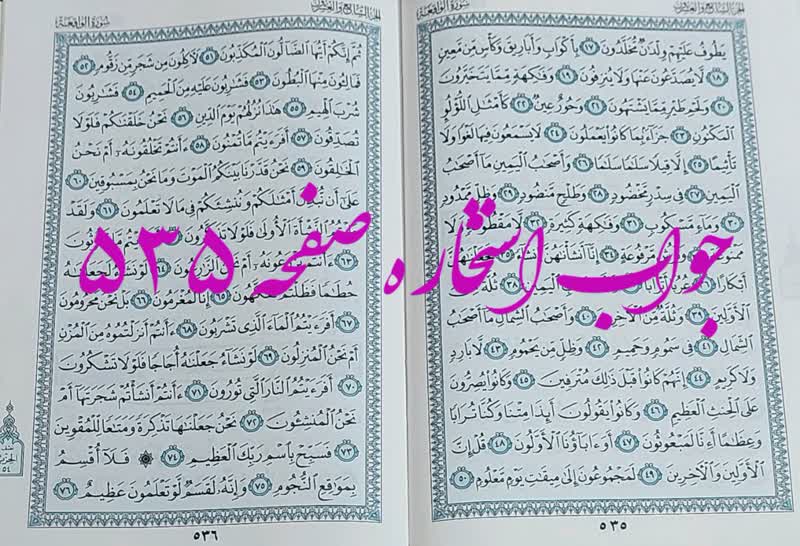 الجزء السابع والعشرون
سورة الواقعة
يَطُوفُ عَلَيْهِمْ وِلْدَٰنٌ مُّخَلَّدُونَ ١٧ بِأَكْوَابٍ وَأَبَارِيقَ وَكَأْسٍ مِّن مَّعِينٍ
١٨ لَّا يُصَدَّعُونَ عَنْهَا وَلَا يُنزِفُونَ ١٩ وَفَٰكِهَةٍ مِّمَّا يَتَخَيَّرُونَ
٢٠ وَلَحْمِ طَيْرٍ مِّمَّا يَشْتَهُونَ ٢١ وَحُورٌ عِينٌ ٢٢ كَأَمْثَٰلِ اللُّؤْلُؤِ
الْمَكْنُونِ ٢٣ جَزَآءً بِمَا كَانُوا يَعْمَلُونَ ٢٤ لَا يَسْمَعُونَ فِيهَا لَغْوًا وَلَا
تَأْثِيمًا ٢٥ إِلَّا قِيلًا سَلَٰمًا سَلَٰمًا ٢٦ وَأَصْحَٰبُ الْيَمِينِ مَآ أَصْحَٰبُ
الْيَمِينِ ٢٧ فِي سِدْرٍ مَّخْضُودٍ ٢٨ وَطَلْحٍ مَّنضُودٍ ٢٩ وَظِلٍّ مَّمْدُودٍ
٣٠ وَمَآءٍ مَّسْكُوبٍ ٣١ وَفَٰكِهَةٍ كَثِيرَةٍ ٣٢ لَّا مَقْطُوعَةٍ وَلَا
مَمْنُوعَةٍ ٣٣ وَفُرُشٍ مَّرْفُوعَةٍ ٣٤ إِنَّآ أَنشَأْنَٰهُنَّ إِنشَآءً ٣٥ فَجَعَلْنَٰهُنَّ
أَبْكَارًا ٣٦ عُرُبًا أَتْرَابًا ٣٧ الْيَمِينِ ٣٨ ثُلَّةٌ مِّنَ
الْأَوَّلِينَ ٣٩ وَثُلَّةٌ مِّنَ الْآخِرِينَ ٤٠ وَأَصْحَٰبُ الشِّمَالِ مَآ أَصْحَٰبُ
الشِّمَالِ ٤١ فِي سَمُومٍ وَحَمِيمٍ ٤٢ وَظِلٍّ مِّن يَحْمُومٍ ٤٣ لَّا بَارِدٍ
وَلَا كَرِيمٍ ٤٤ إِنَّهُمْ كَانُوا قَبْلَ ذَٰلِكَ مُتْرَفِينَ ٤٥ وَكَانُوا يُصِرُّونَ
عَلَى الْحِنثِ الْعَظِيمِ ٤٦ وَكَانُوا يَقُولُونَ أَئِذَا مِتْنَا وَكُنَّا تُرَابًا
وَعِظَٰمًا أَءِنَّا لَمَبْعُوثُونَ ٤٧ أَوَءَابَآؤُنَا الْأَوَّلُونَ ٤٨ قُلْ إِنَّ
الْأَوَّلِينَ وَالْآخِرِينَ ٤٩ لَمَجْمُوعُونَ إِلَىٰ مِيقَٰتِ يَوْمٍ مَّعْلُومٍ ٥٠
٥٣٥
الجزء السابع والعشرون
سورة الواقعة
ثُمَّ إِنَّكُمْ أَيُّهَا الضَّآلُّونَ الْمُكَذِّبُونَ ٥١ لَآكِلُونَ مِن شَجَرٍ مِّن زَقُّومٍ ٥٢
فَمَالِـُٔونَ مِنْهَا الْبُطُونَ ٥٣ فَشَٰرِبُونَ عَلَيْهِ مِنَ الْحَمِيمِ ٥٤ فَشَٰرِبُونَ
شُرْبَ الْهِيمِ ٥٥ هَٰذَا نُزُلُهُمْ يَوْمَ الدِّينِ ٥٦ نَحْنُ خَلَقْنَٰكُمْ فَلَوْلَا
تُصَدِّقُونَ ٥٧ أَفَرَءَيْتُم مَّا تُمْنُونَ ٥٨ ءَأَنتُمْ تَخْلُقُونَهُۥٓ أَمْ نَحْنُ
الْخَٰلِقُونَ ٥٩ نَحْنُ قَدَّرْنَا بَيْنَكُمُ الْمَوْتَ وَمَا نَحْنُ بِمَسْبُوقِينَ ٦٠
عَلَىٰٓ أَن نُّبَدِّلَ أَمْثَٰلَكُمْ وَنُنشِئَكُمْ فِي مَا لَا تَعْلَمُونَ ٦١ وَلَقَدْ
عَلِمْتُمُ النَّشْأَةَ الْأُولَىٰ فَلَوْلَا تَذَكَّرُونَ ٦٢
٦٣ ءَأَنتُمْ تَزْرَعُونَهُۥٓ أَمْ نَحْنُ الزَّٰرِعُونَ ٦٤ لَوْ نَشَآءُ لَجَعَلْنَٰهُ
حُطَٰمًا فَظَلْتُمْ تَفَكَّهُونَ ٦٥ إِنَّا لَمُغْرَمُونَ ٦٦ بَلْ نَحْنُ مَحْرُومُونَ
٦٧ أَفَرَءَيْتُمُ الْمَآءَ الَّذِي تَشْرَبُونَ ٦٨ ءَأَنتُمْ أَنزَلْتُمُوهُ مِنَ الْمُزْنِ
أَمْ نَحْنُ الْمُنزِلُونَ ٦٩ لَوْ نَشَآءُ جَعَلْنَٰهُ أُجَاجًا فَلَوْلَا تَشْكُرُونَ
٧٠ أَفَرَءَيْتُمُ النَّارَ الَّتِي تُورُونَ ٧١ ءَأَنتُمْ أَنشَأْتُمْ شَجَرَتَهَآ أَمْ
نَحْنُ الْمُنشِـُٔونَ ٧٢ نَحْنُ جَعَلْنَٰهَا تَذْكِرَةً وَمَتَٰعًا لِّلْمُقْوِينَ
٧٣ فَسَبِّحْ بِاسْمِ رَبِّكَ الْعَظِيمِ ٧٤ ۞ فَلَآ أُقْسِمُ
بِمَوَٰقِعِ النُّجُومِ ٧٥ وَإِنَّهُۥ لَقَسَمٌ لَّوْ تَعْلَمُونَ عَظِيمٌ ٧٦
٥٣٦
جواب استخاره صفحه ۵۳۵